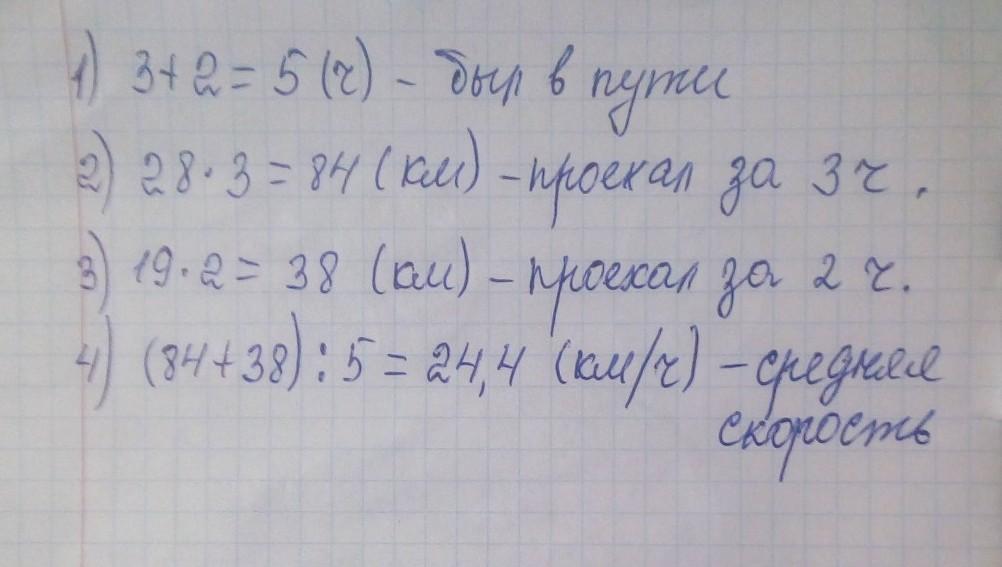 1) 3+2= 5 (ч) - был в пути
2) 28·3=84 (км) - проехал за 3 ч.
3) 19·2= 38 (км) - проехал за 2 ч.
4) (84+38):5=24,4 (км/ч) - средняя
скорость